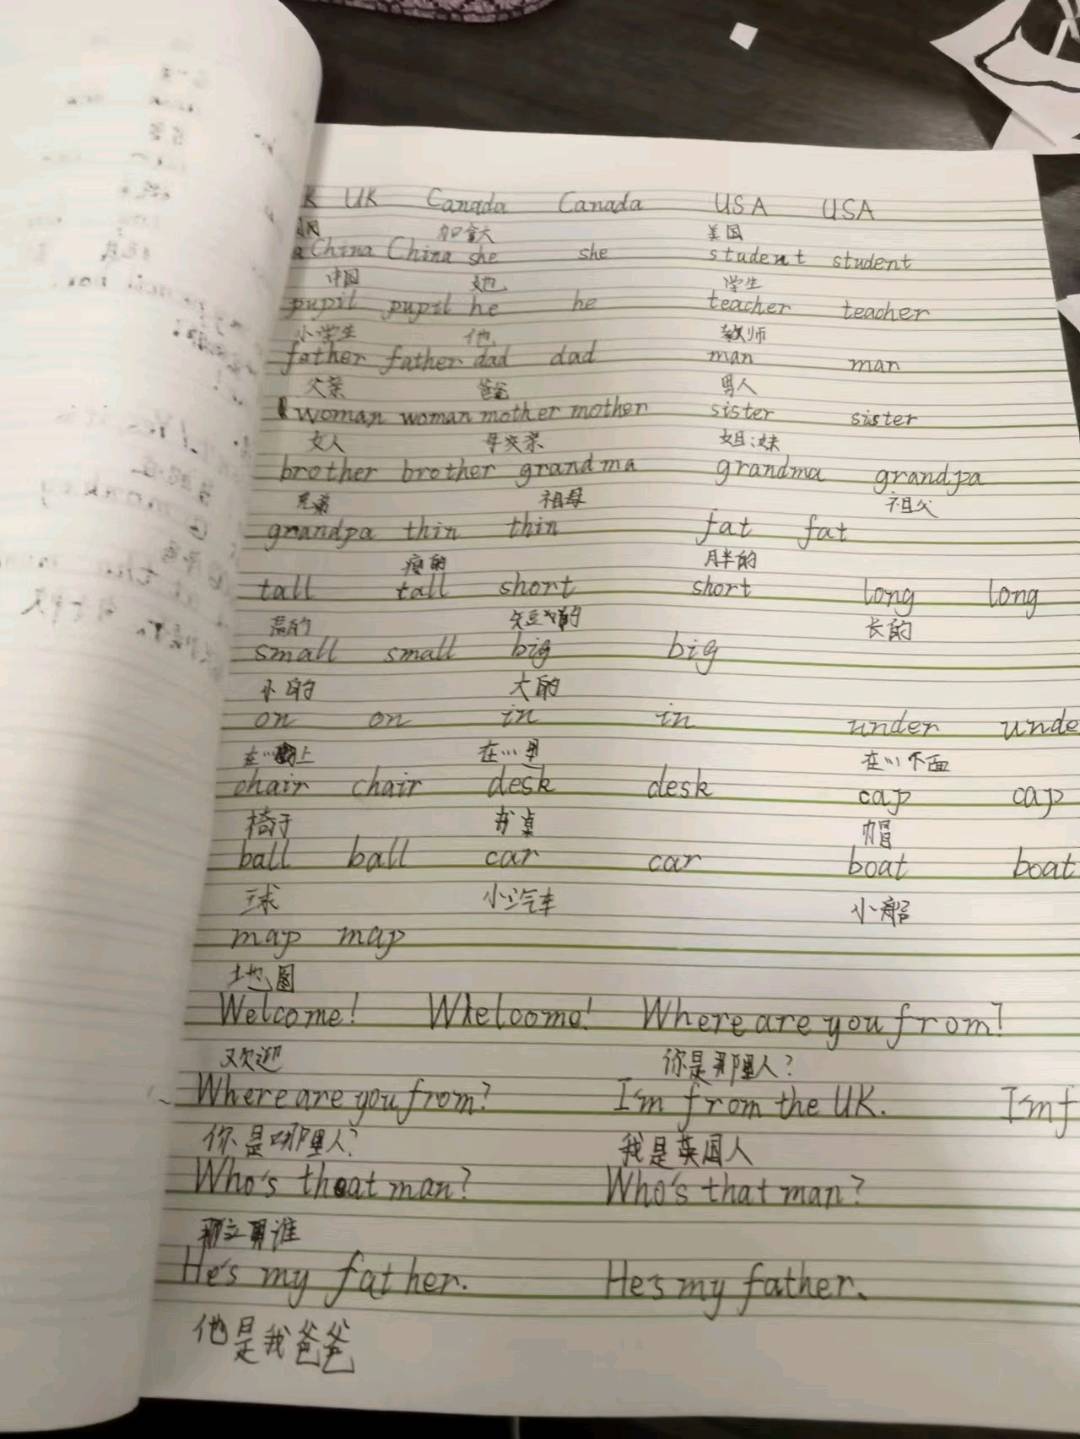 UK Canada Canada USA USA
加拿大 美国
China China she she student student
中国 她 学生
pupil pupil he he teacher teacher
小学生 他 教师
father father dad dad man man
父亲 爸爸 男人
woman woman mother mother sister sister
女人 母亲 姐妹
brother brother grandma grandma grandpa
兄弟 祖母 祖父
grandpa thin thin fat fat
瘦的 胖的
tall tall short short long long
高的 矮的 长的
small small big big
小的 大的
on on in in under unde
在…上 在…里 在…下面
chair chair desk desk cap cap
椅子 书桌 帽
ball ball car car boat boat
球 小汽车 小船
map map
地图
Welcome! Welcome! Where are you from?
欢迎 你是那里人?
Where are you from? I'm from the UK. I'm f
你是哪里人? 我是英国人
Who's that man? Who's that man?
那 男谁
He's my father. He's my father.
他是我爸爸